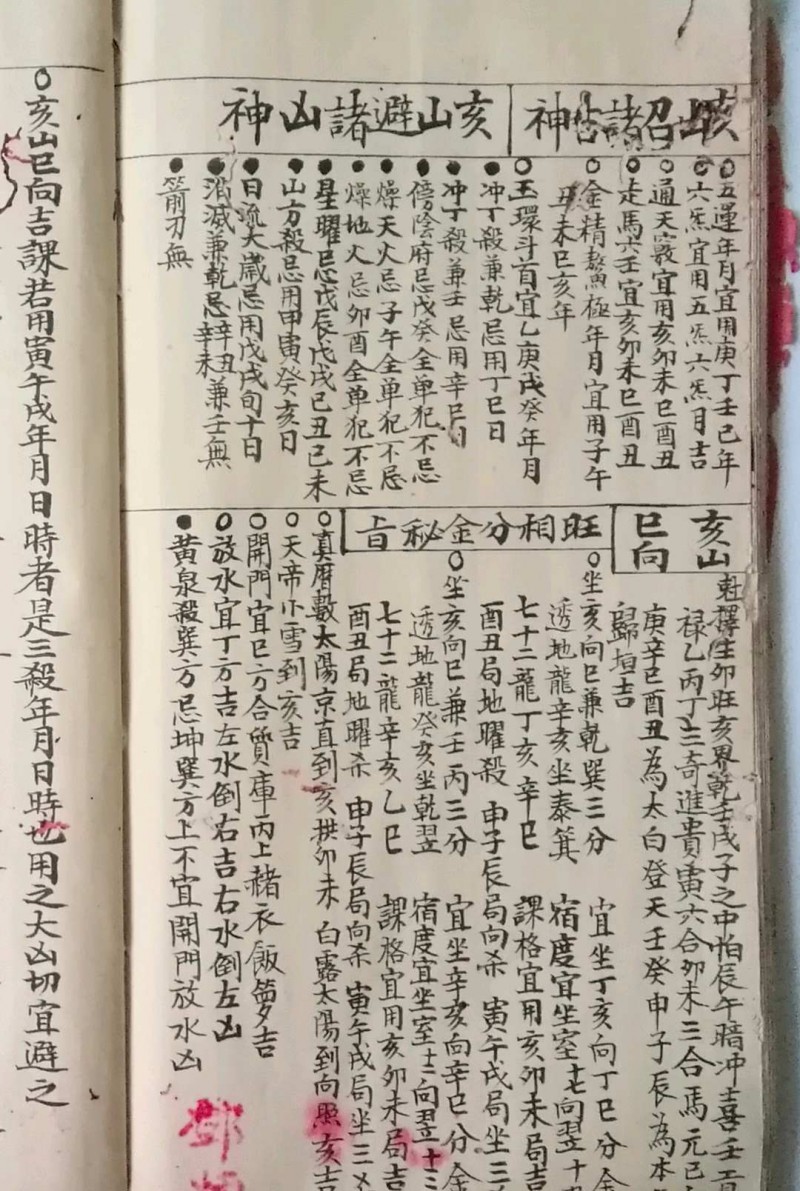 亥山招諸吉神
五運年月宜用庚丁壬己年
六炁宜用五炁六炁月吉
通天竅宜用亥卯未巳酉丑
走馬六壬宜亥卯未巳酉丑
金精鰲極年月宜用子午
丑未巳亥年
玉環斗首宜乙庚戊癸年月
亥山避諸凶神
冲丁殺兼乾忌用丁巳日
冲丁殺兼壬忌用辛巳日
傍陰府忌戊癸全单犯不忌
燥天火忌子午全单犯不忌
燥地火忌卯酉全单犯不忌
星曜忌戊辰戊戌己丑己未
山方殺忌用甲寅癸亥日
日流太歲忌用戊戌旬十日
消滅兼乾忌辛丑辛未兼壬無
箭刃無
亥山巳向
尅擇生卯旺亥界乾壬戌子之中怕辰午暗冲喜壬
禄乙丙丁三奇進貴寅六合卯未三合馬元巳
庚辛巳酉丑為太白登天壬癸申子辰為本
歸垣吉
旺相分金秘旨
坐亥向巳兼乾巽三分 宜坐丁亥向丁巳分金
透地龍辛亥坐泰箕 宿度宜坐室七向翌十
七十二龍丁亥辛巳 課格宜用亥卯未局吉
酉丑局地曜殺 申子辰局向杀 寅午戌局坐三
坐亥向巳兼壬丙三分 宜坐辛亥向辛巳分金
透地龍癸亥坐乾翌 宿度宜坐室十二向翌十三
七十二龍辛亥乙巳 課格宜用亥卯未局吉
酉丑局地曜杀 申子辰局向杀 寅午戌局坐三
真曆數太陽京直到亥拱卯未 白露太陽到向照亥吉
天帝小雪到亥吉
開門宜巳方合質庫丙上赭衣飯籮吉
放水宜丁方吉左水倒右吉右水倒左凶
黄泉殺巽方忌坤巽方上不宜開門放水凶
鄧
亥山巳向吉課若用寅午戌年月日時者是三殺年月日時也用之大凶切宜避之